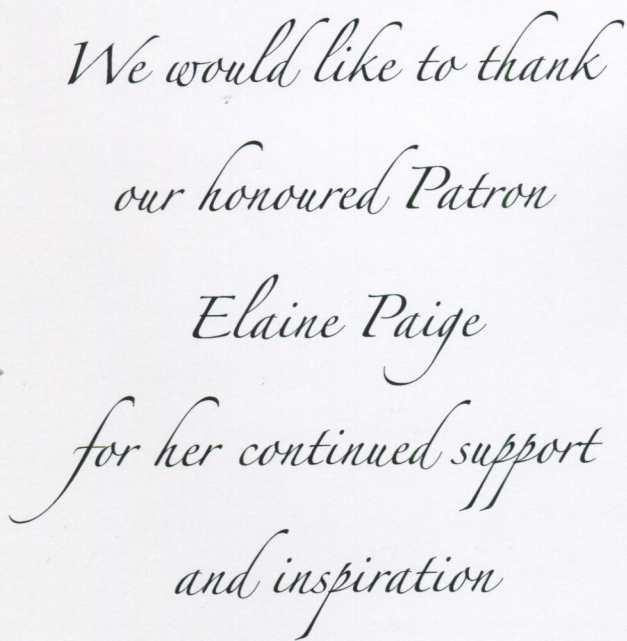 We would like to thank
our honoured Patron
Elaine Paige
for her continued support
and inspiration